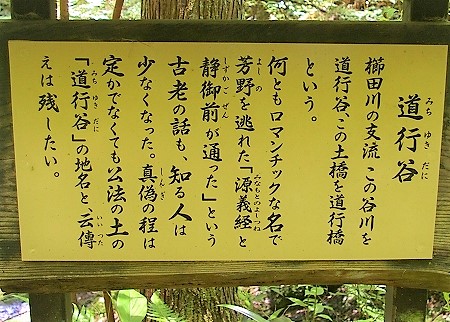 道行谷
みち ゆき だに
櫛田川の支流 この谷川を
道行谷、この土橋を道行橋
という。
何ともロマンチックな名で
芳野を逃れた「源義経と
よしの
みなもとのよしつね
静御前が通った」という
しずかごぜん
古老の話も、知る人は
少なくなった。真偽の程は
しんぎ
定かでなくても公法の土の
「道行谷」の地名と、云傳
みち ゆき だに
いいつた
えは残したい。